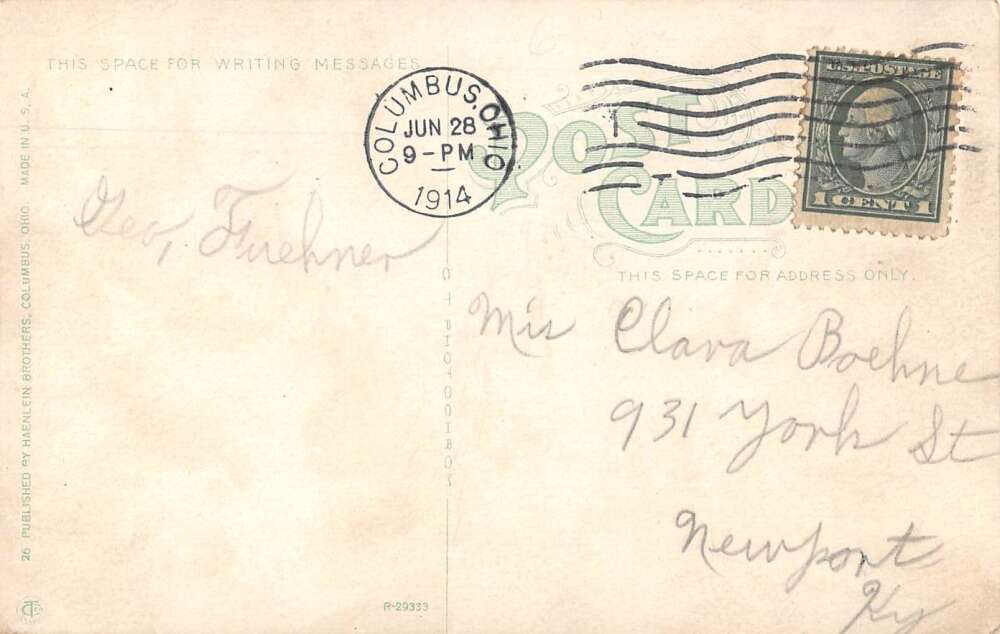 THIS SPACE FOR WRITING MESSAGES
COLUMBUS, OHIO
JUN 28
9-PM
1914
U.S. POSTAGE
1 CENT 1
POST
CARD
THIS SPACE FOR ADDRESS ONLY.
Geo, Fuehner
Mis Clara Boehne
931 York St
Newport
Ky
26 PUBLISHED BY HAENLEIN BROTHERS, COLUMBUS, OHIO. MADE IN U.S.A.
C T PHOTOCHROM
R-29333